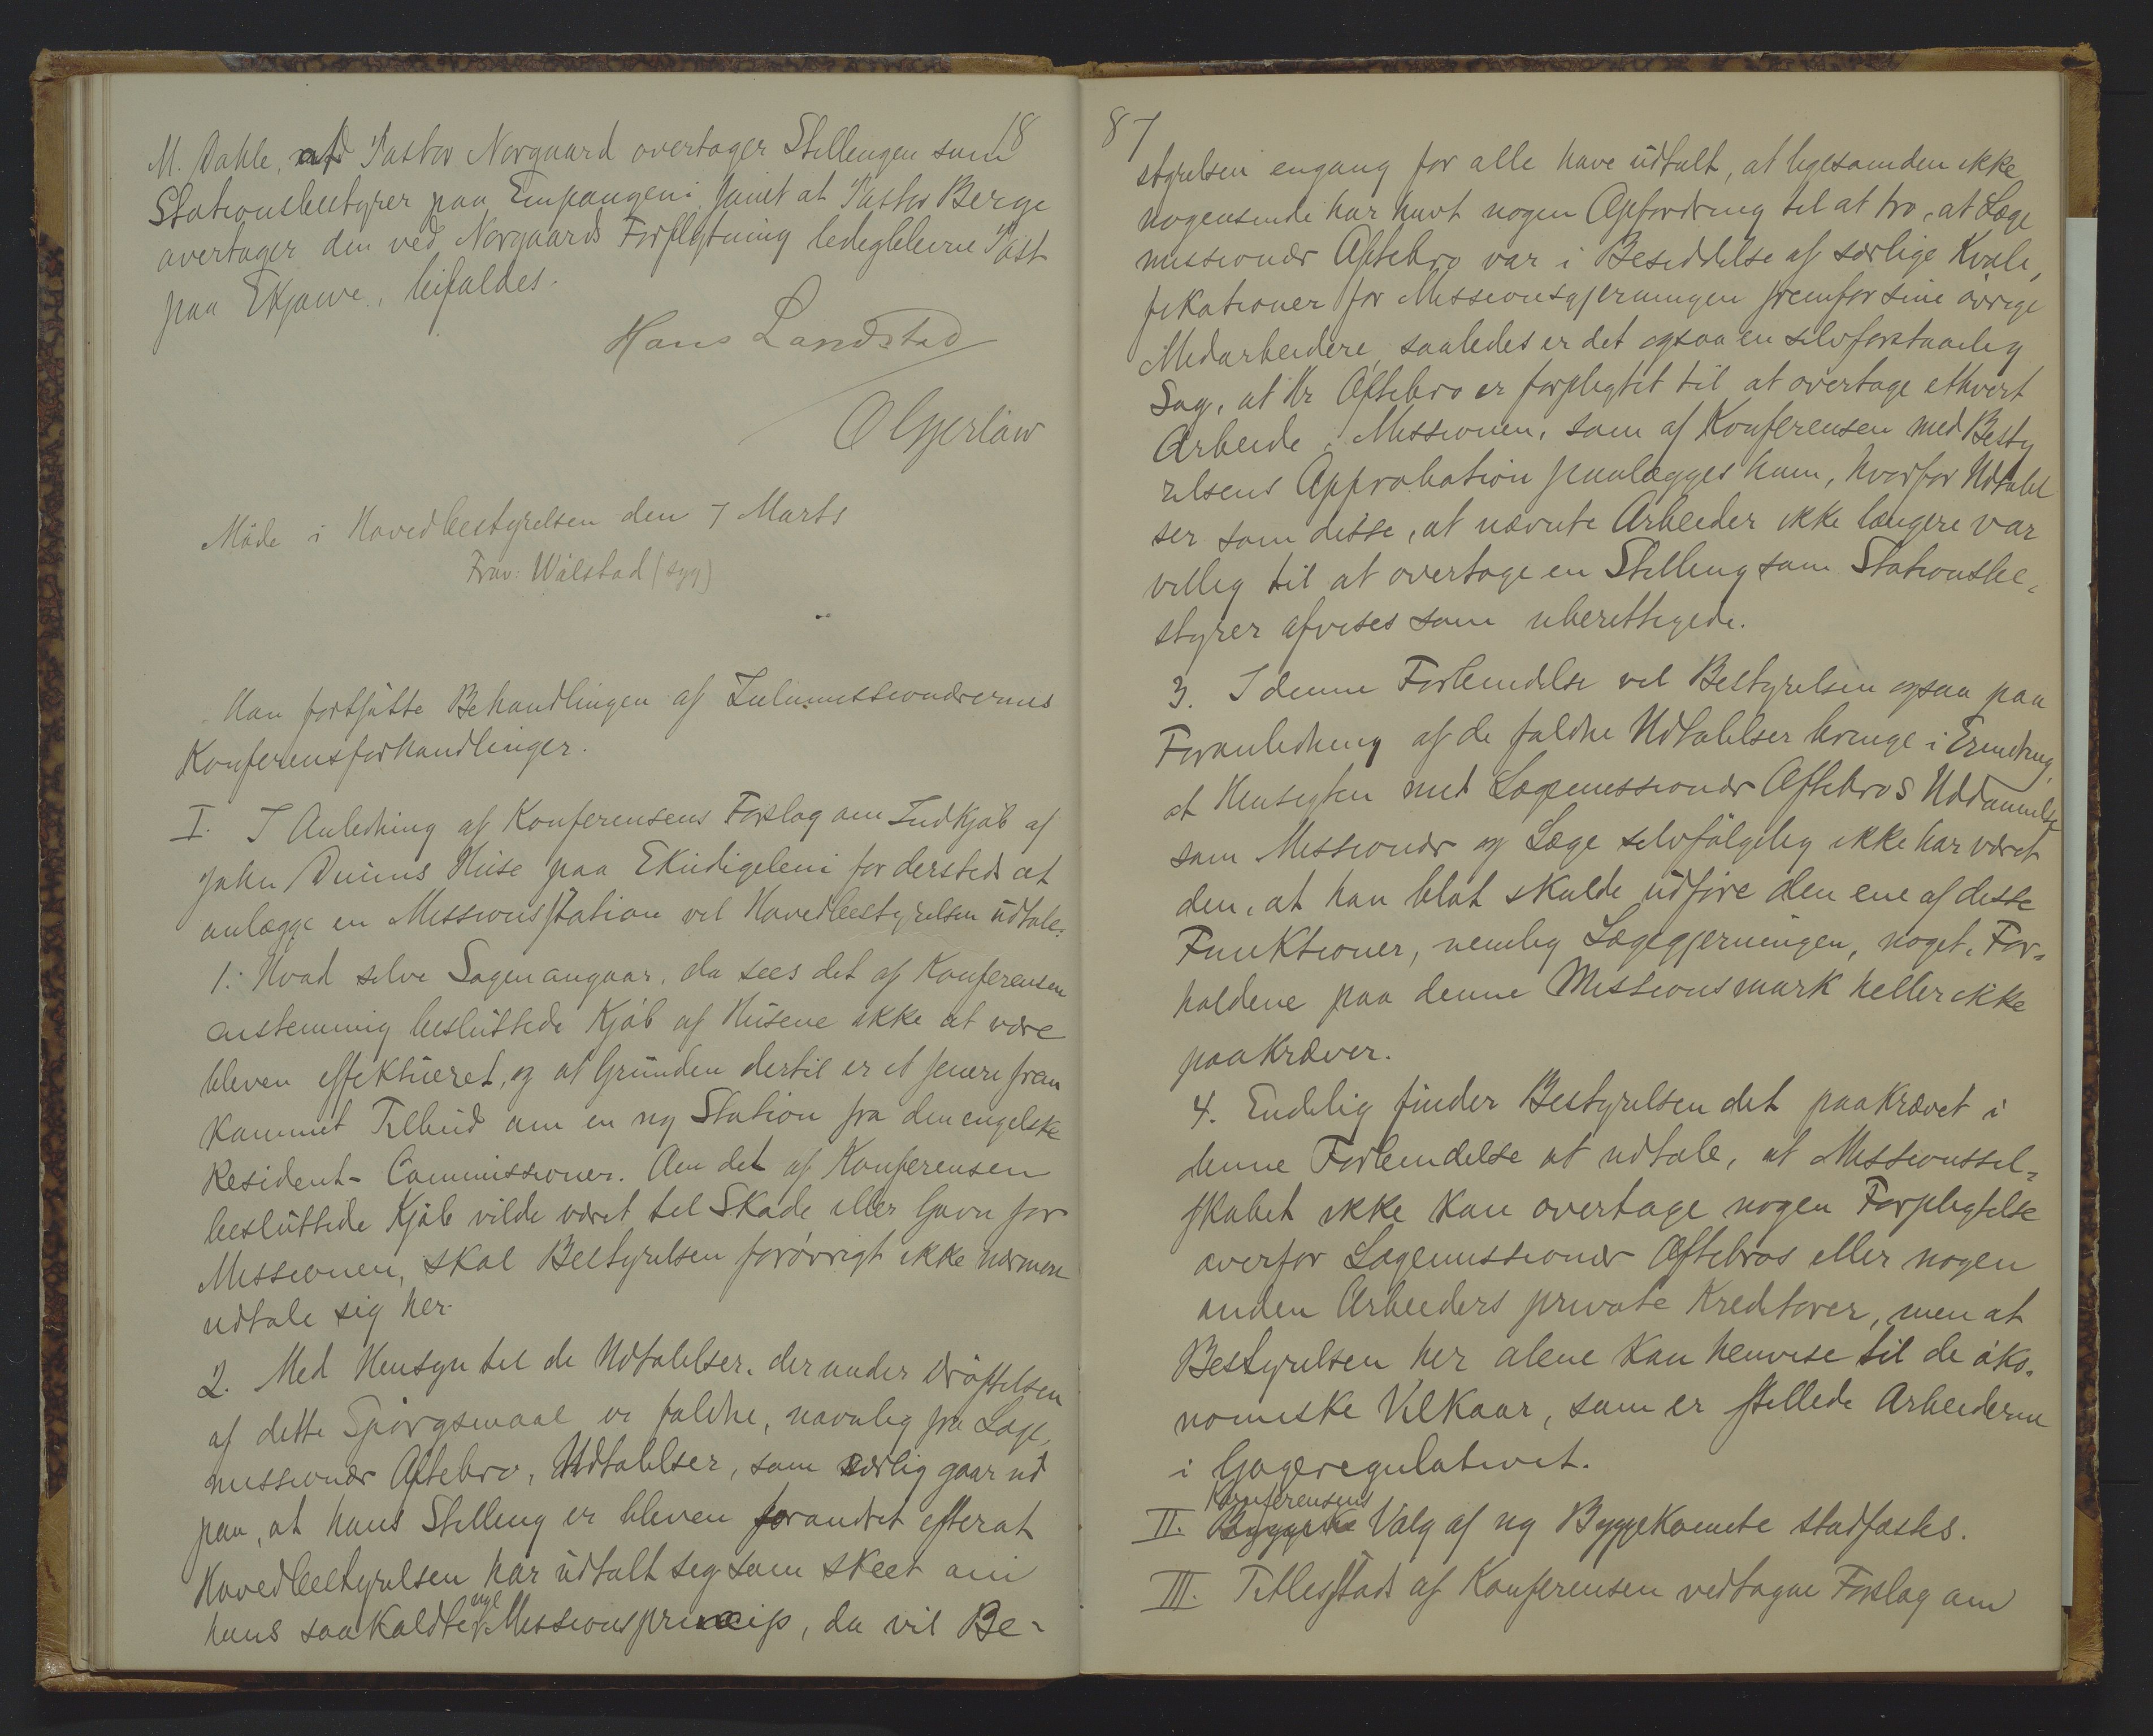 18
M. Dahle, at Pastor Norgaard overtager Stillingen som
Stationsbestyrer paa Empangeni samt at Pastor Berge
overtager den ved Norgaards Forflytning ledigblevne Post
paa Ekjowe, bifaldes.
Hans Landstad
O Gjerløw
Møde i Hovedbestyrelsen den 7 Marts
Frav: Wålstad (syg)
Man fortsatte Behandlingen af Zulumissionærernes
Konferensforhandlinger.
I. I Anledning af Konferensens Forslag om Indkjøb af
John Dunns Huse paa Ekudigeleni for dersteds at
anlægge en Missionsstation vil Hovedbestyrelsen udtale:
1. Hvad selve Sagen angaar, da sees det af Konferensen
enstemmig besluttede Kjøb af Husene ikke at være
bleven effektueret, og at Grunden dertil er et senere frem
kommet Tilbud om en ny Station fra den engelske
Resident-Commissioner. Om det af Konferensen
besluttede Kjøb vilde været til Skade eller Gavn for
Missionen, skal Bestyrelsen forøvrigt ikke nærmere
udtale sig her.
2. Med Hensyn til de Udtalelser, der under Drøftelsen
af dette Spørgsmaal er faldne, navnlig fra Læge,
missionær Oftebro, Udtalelser, som særlig gaar ud
paa, at hans Stilling er bleven forandret efterat
Hovedbestyrelsen har udtalt sig som skeet om
hans saakaldte nye Missionsprincip, da vil Be-
87
styrelsen engang for alle have udtalt, at ligesom den ikke
nogensinde har havt nogen Opfordring til at tro, at Læge
missionær Oftebro var i Besiddelse af særlige Kvali,
fikationer for Missionsgjerningen fremfor sine øvrige
Medarbeidere, saaledes er det ogsaa en selvforstaaelig
Sag, at Hr Oftebro er forpligtet til at overtage ethvert
Arbeide i Missionen, som af Konferensen med Besty
relsens Approbation paalægges ham, hvorfor Udtalel
ser som disse, at nævnte Arbeider ikke længere var
villig til at overtage en Stilling som Stationsbe-
styrer afvises som uberettigede.
3. I denne Forbindelse vil Bestyrelsen ogsaa paa
Foranledning af de faldne Udtalelser bringe i Erindring,
at Hensigten med Lægemissionær Oftebros Uddannelse
som Missionær og Læge selvfølgelig ikke har været
den, at han blot skulde udføre den ene af disse
Funktioner, nemlig Lægegjerningen, noget, For-
holdene paa denne Missionsmark heller ikke
paakræver.
4. Endelig finder Bestyrelsen det paakrævet i
denne Forbindelse at udtale, at Missionssel-
skabet ikke kan overtage nogen Forpligtelse
overfor Lægemissionær Oftebros eller nogen
anden Arbeiders private Kreditorer, men at
Bestyrelsen her alene kan henvise til de øko-
nomiske Vilkaar, som er stillede Arbeiderne
i Gageregulativet.
II. Konferensens Valg af ny Byggekomite stadfæstes.
III. Tillesstads af Konferensen vedtagne Forslag om